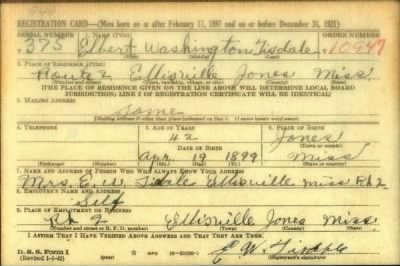 REGISTRATION CARD—(Men born on or after February 17, 1897 and on or before December 31, 1921)
SERIAL NUMBER 1. NAME (Print) ORDER NUMBER
375 Elbert Washington Tisdale 10947
2. PLACE OF RESIDENCE (Print)
Route 2 Ellisville Jones Miss.
[THE PLACE OF RESIDENCE GIVEN ON THE LINE ABOVE WILL DETERMINE LOCAL BOARD
JURISDICTION; LINE 2 OF REGISTRATION CERTIFICATE WILL BE IDENTICAL]
3. MAILING ADDRESS
Same
[Mailing address if other than place indicated on line 2. If same insert word same]
4. TELEPHONE 5. AGE IN YEARS 6. PLACE OF BIRTH
42 Jones
DATE OF BIRTH
Apr. 19 1899 Miss.
7. NAME AND ADDRESS OF PERSON WHO WILL ALWAYS KNOW YOUR ADDRESS
Mrs. E. W. Tisdale Ellisville Miss Rt 2
8. EMPLOYER'S NAME AND ADDRESS
Self
9. PLACE OF EMPLOYMENT OR BUSINESS
Rt 2 Ellisville Jones Miss.
I AFFIRM THAT I HAVE VERIFIED ABOVE ANSWERS AND THAT THEY ARE TRUE.
D. S. S. Form 1
(Revised 1-1-42)
E W Tisdale
(Registrant's signature)